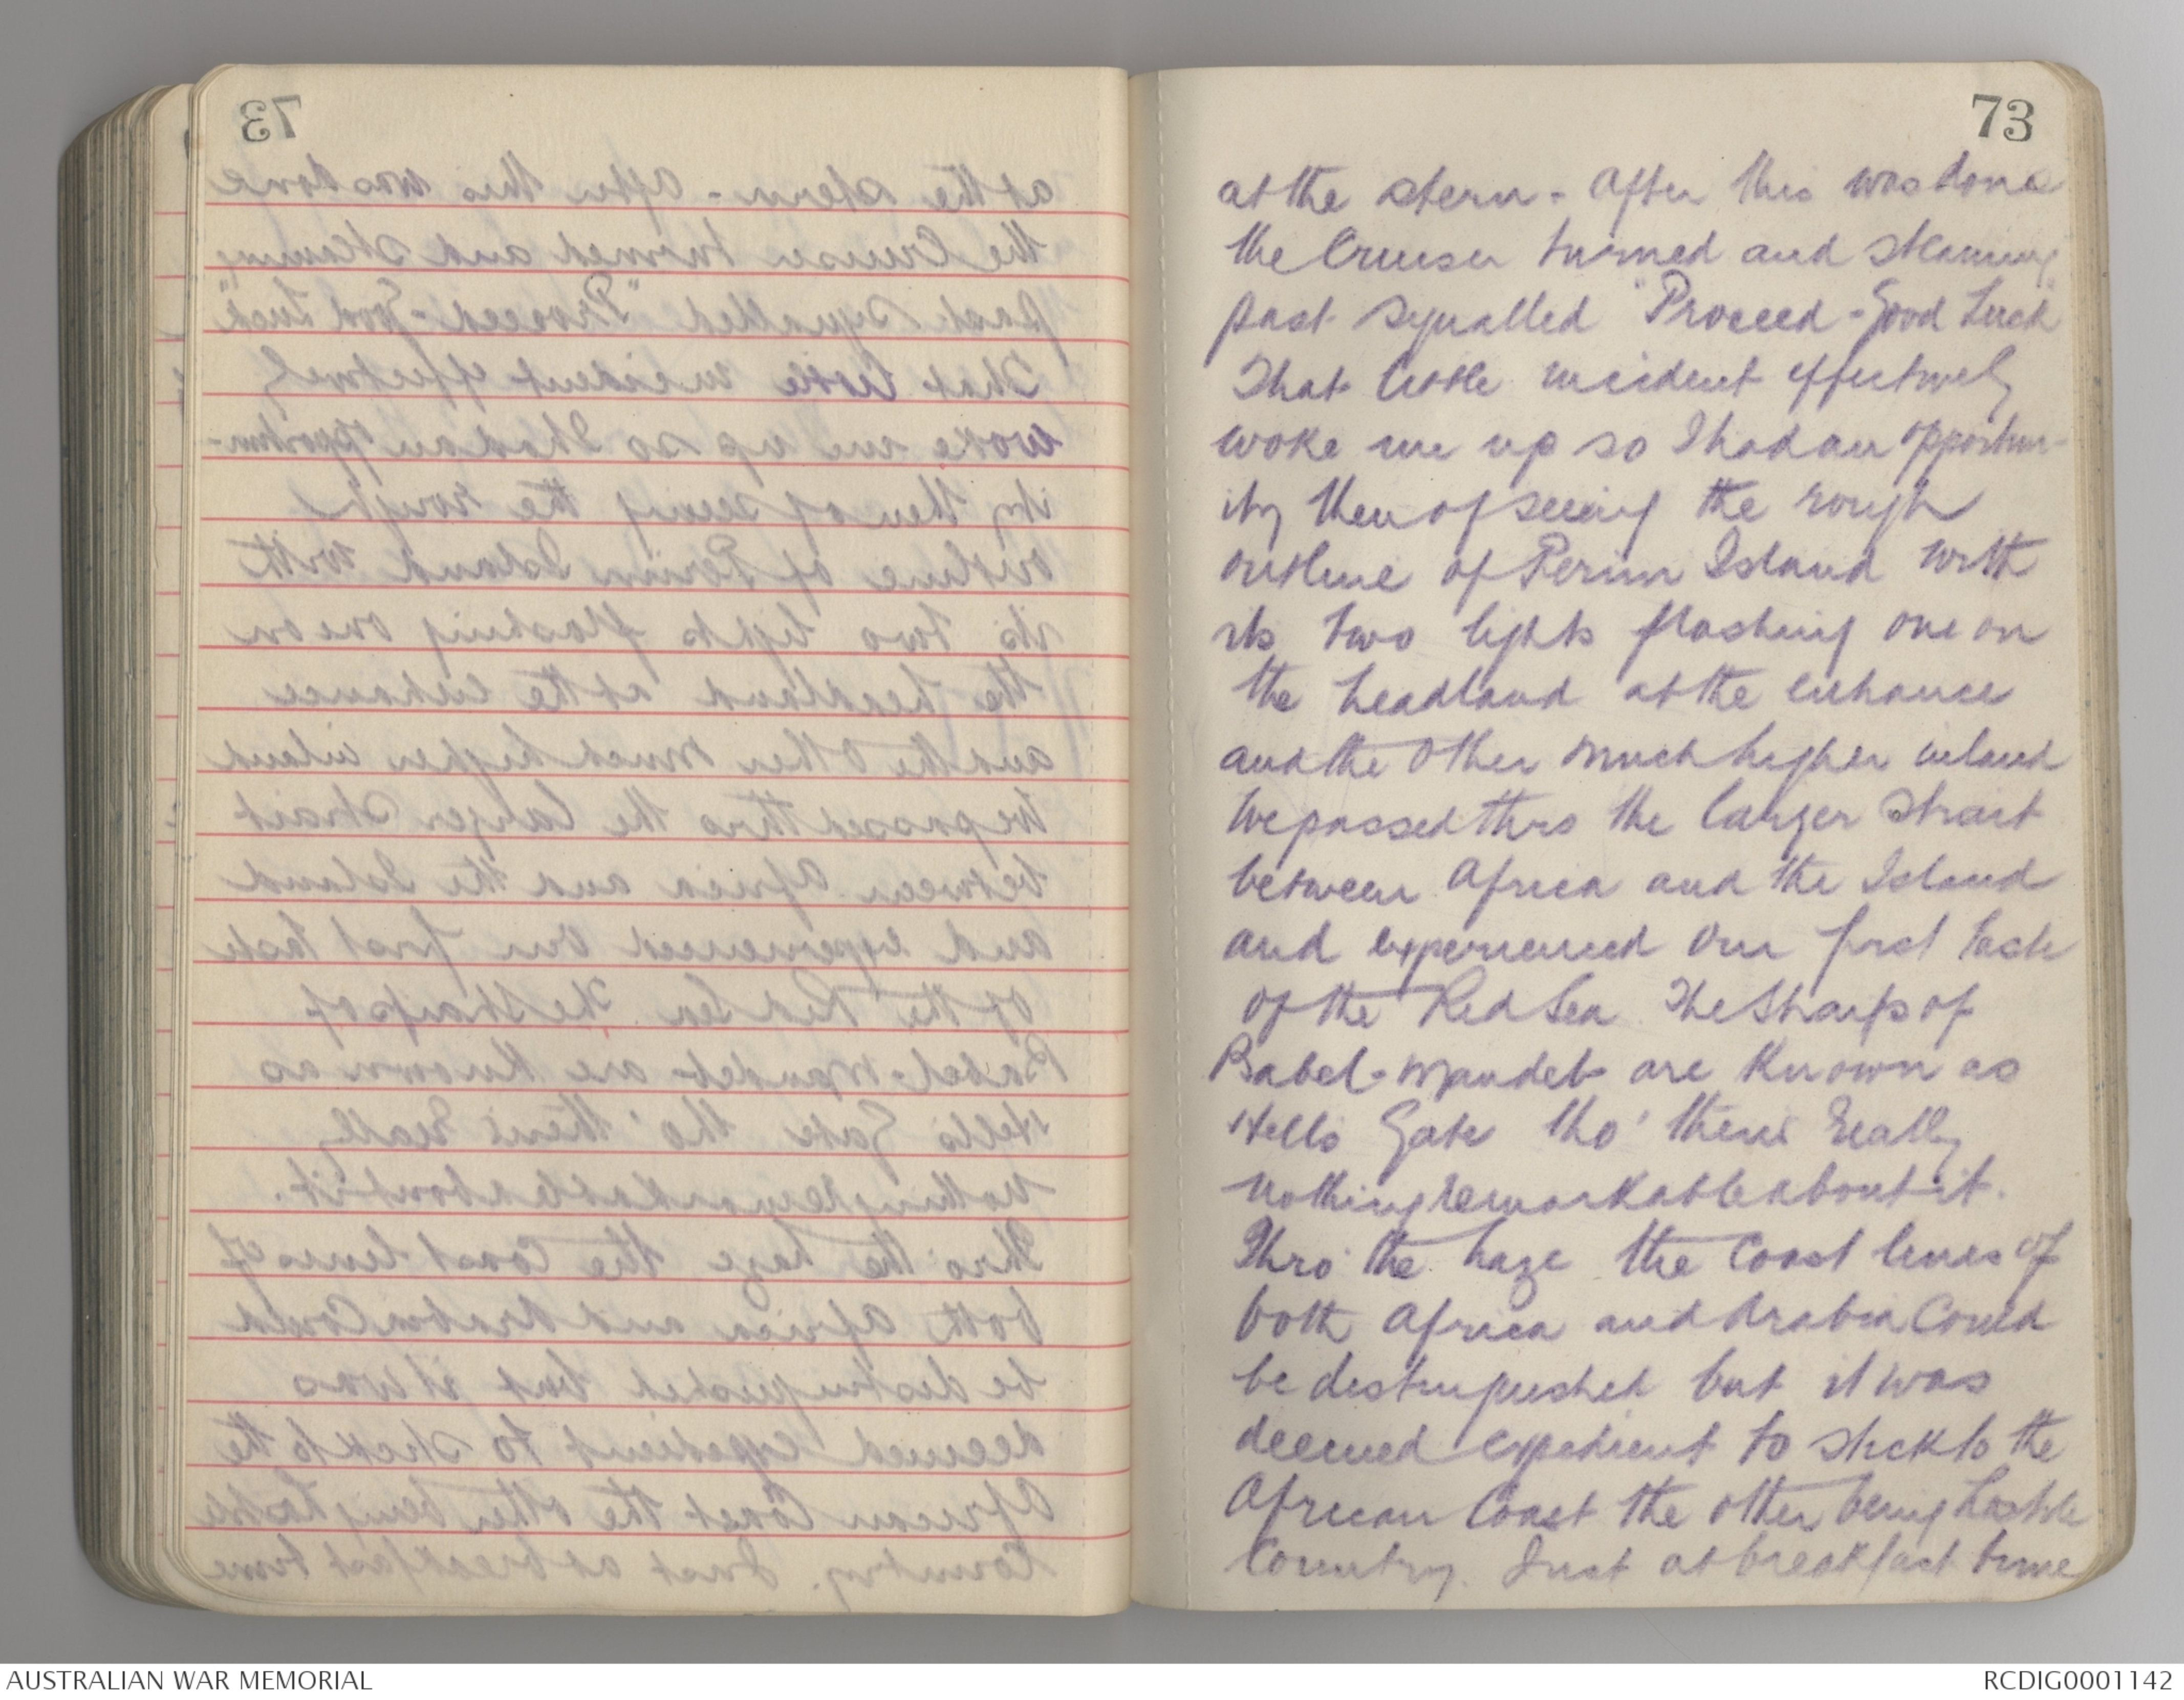 73
at the stern - After this was done
the Cruiser turned and steaming
past signalled "Proceed - Good Luck"
That little incident effectively
woke me up so I had an opportun-
ity then of seeing the rough
outline of Perim Island with
its two lights flashing one on
the headland at the entrance
and the other much higher inland
We passed thro the larger Strait
between Africa and the Island
and experienced our first taste
of the Red Sea. The Straits of
Babel-Mandeb are known as
Hells Gate tho' theres really
nothing remarkable about it.
Thro' the haze the Coast lines of
both Africa and Arabia Could
be distinguished but it was
deemed expedient to stick to the
African Coast the other being hostile
Country. Just at breakfast time
AUSTRALIAN WAR MEMORIAL
RCDIG0001142